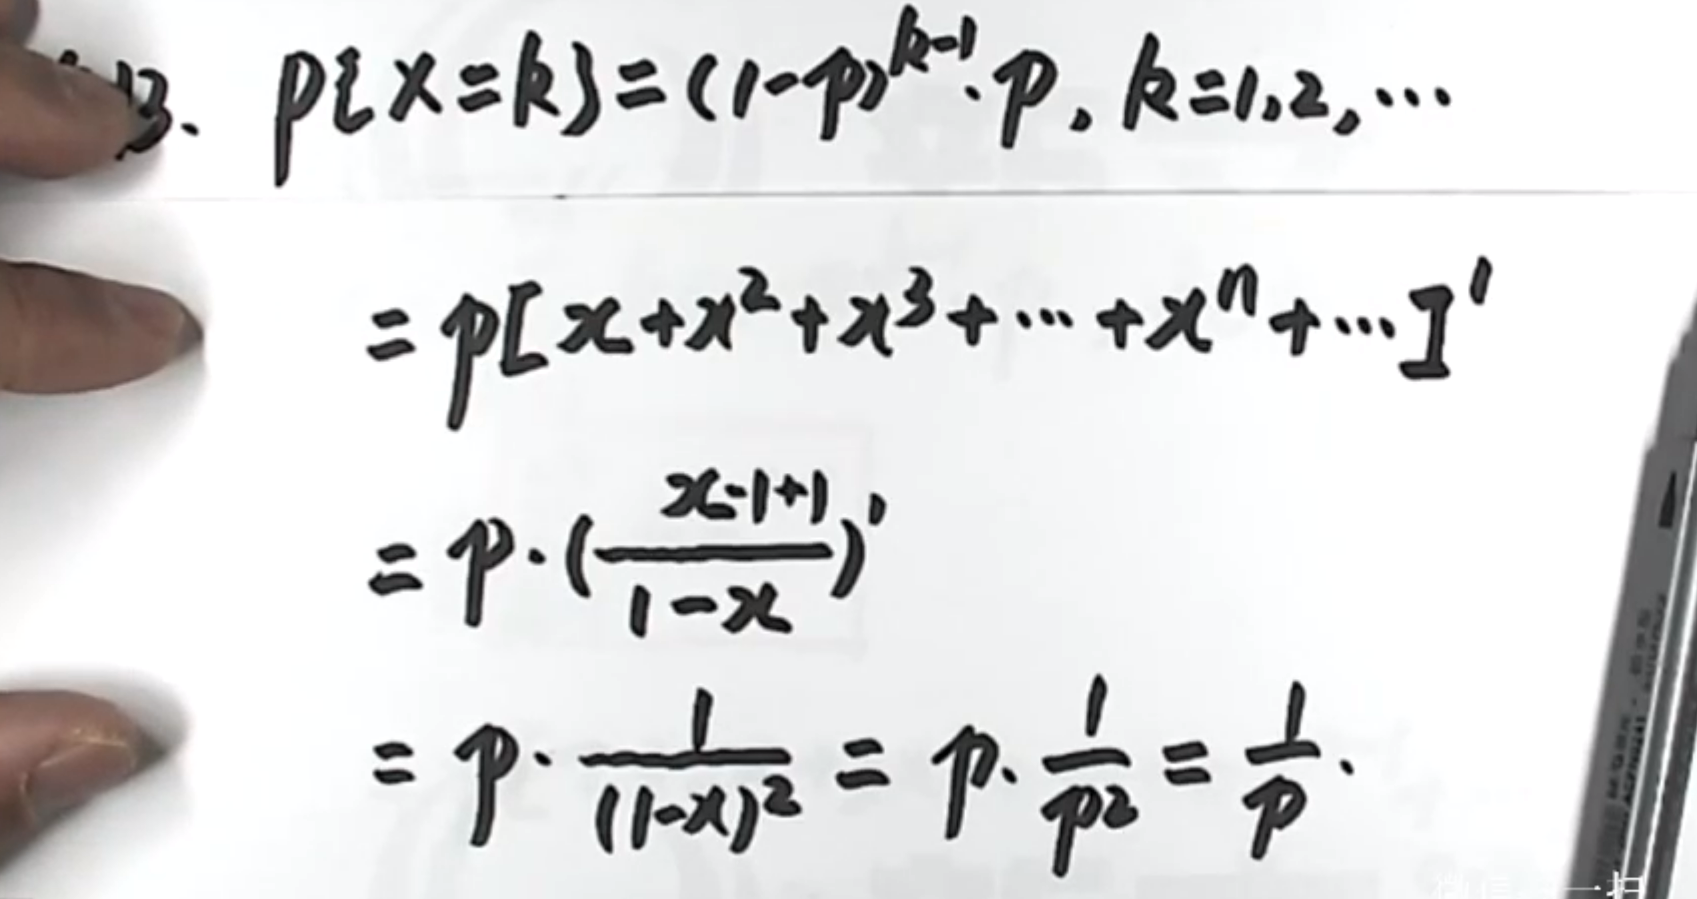 3. P{X=k}=(1-p)^{k-1}·p, k=1,2,…
=p[x+x²+x³+…+xⁿ+…]'
=p·(\frac{x-1+1}{1-x})'
=p·\frac{1}{(1-x)²}=p·\frac{1}{p²}=\frac{1}{p}.